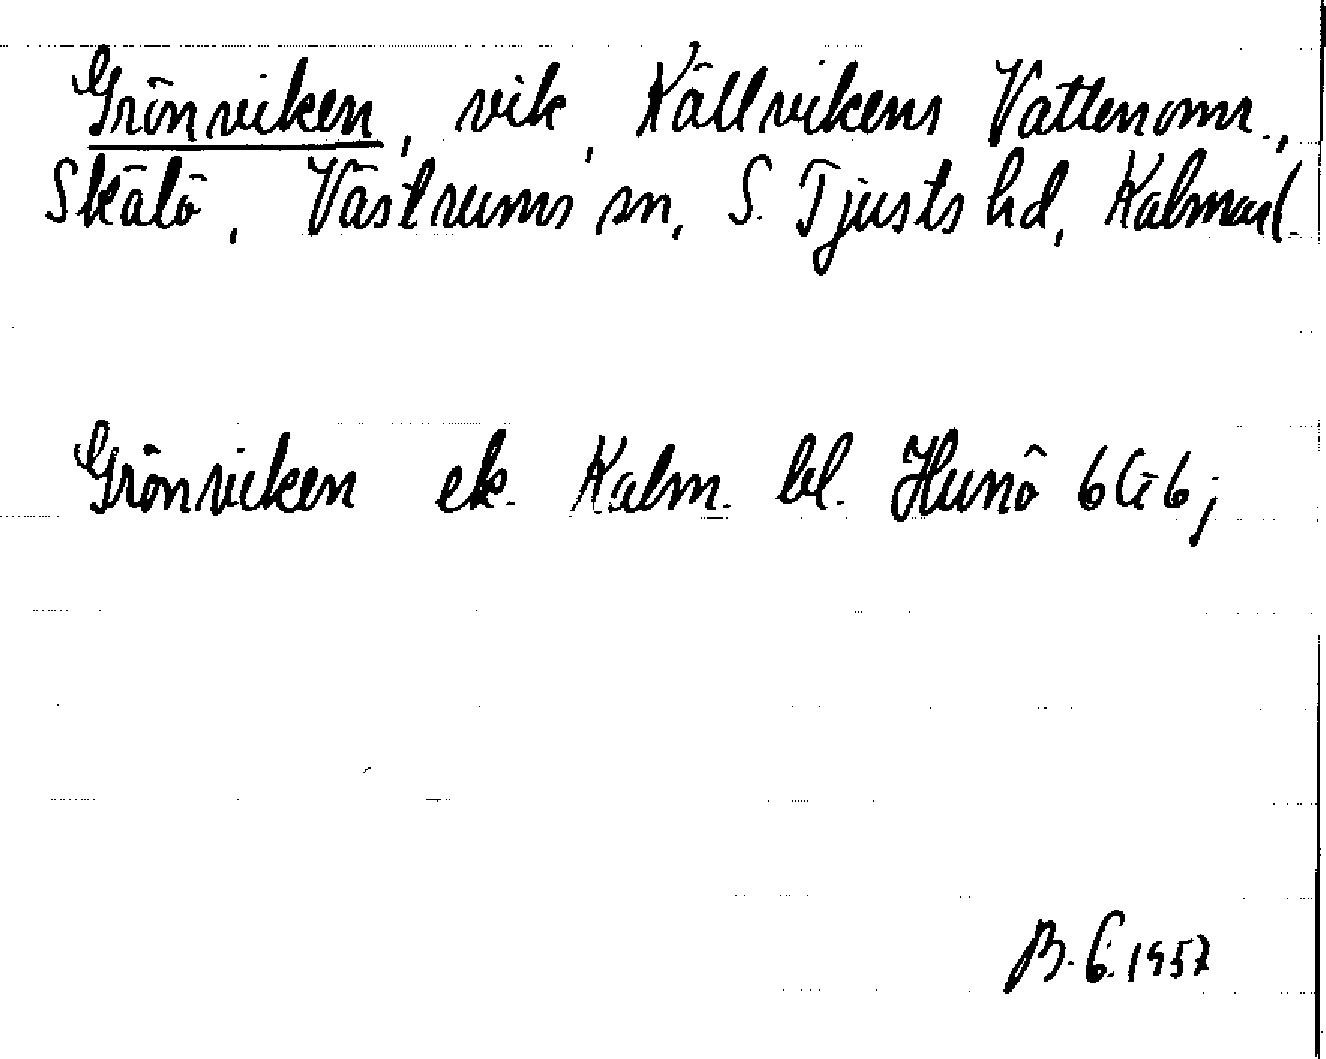 Grönviken, vik, Källvikens Vattenomr.,
Skälö, Västrums sn, S. Tjusts hd, Kalmar l.
Grönviken ek. Kalm. bl. Hunö 6G-6;
B. E. 1957